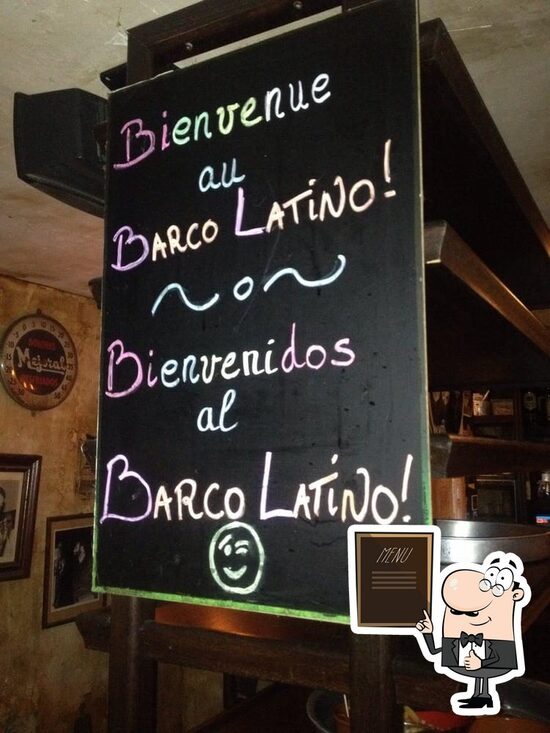 Bienvenue
au
BARCO LATINO!
~o~
Bienvenidos
al
BARCO LATINO!
Mejoral
MENU